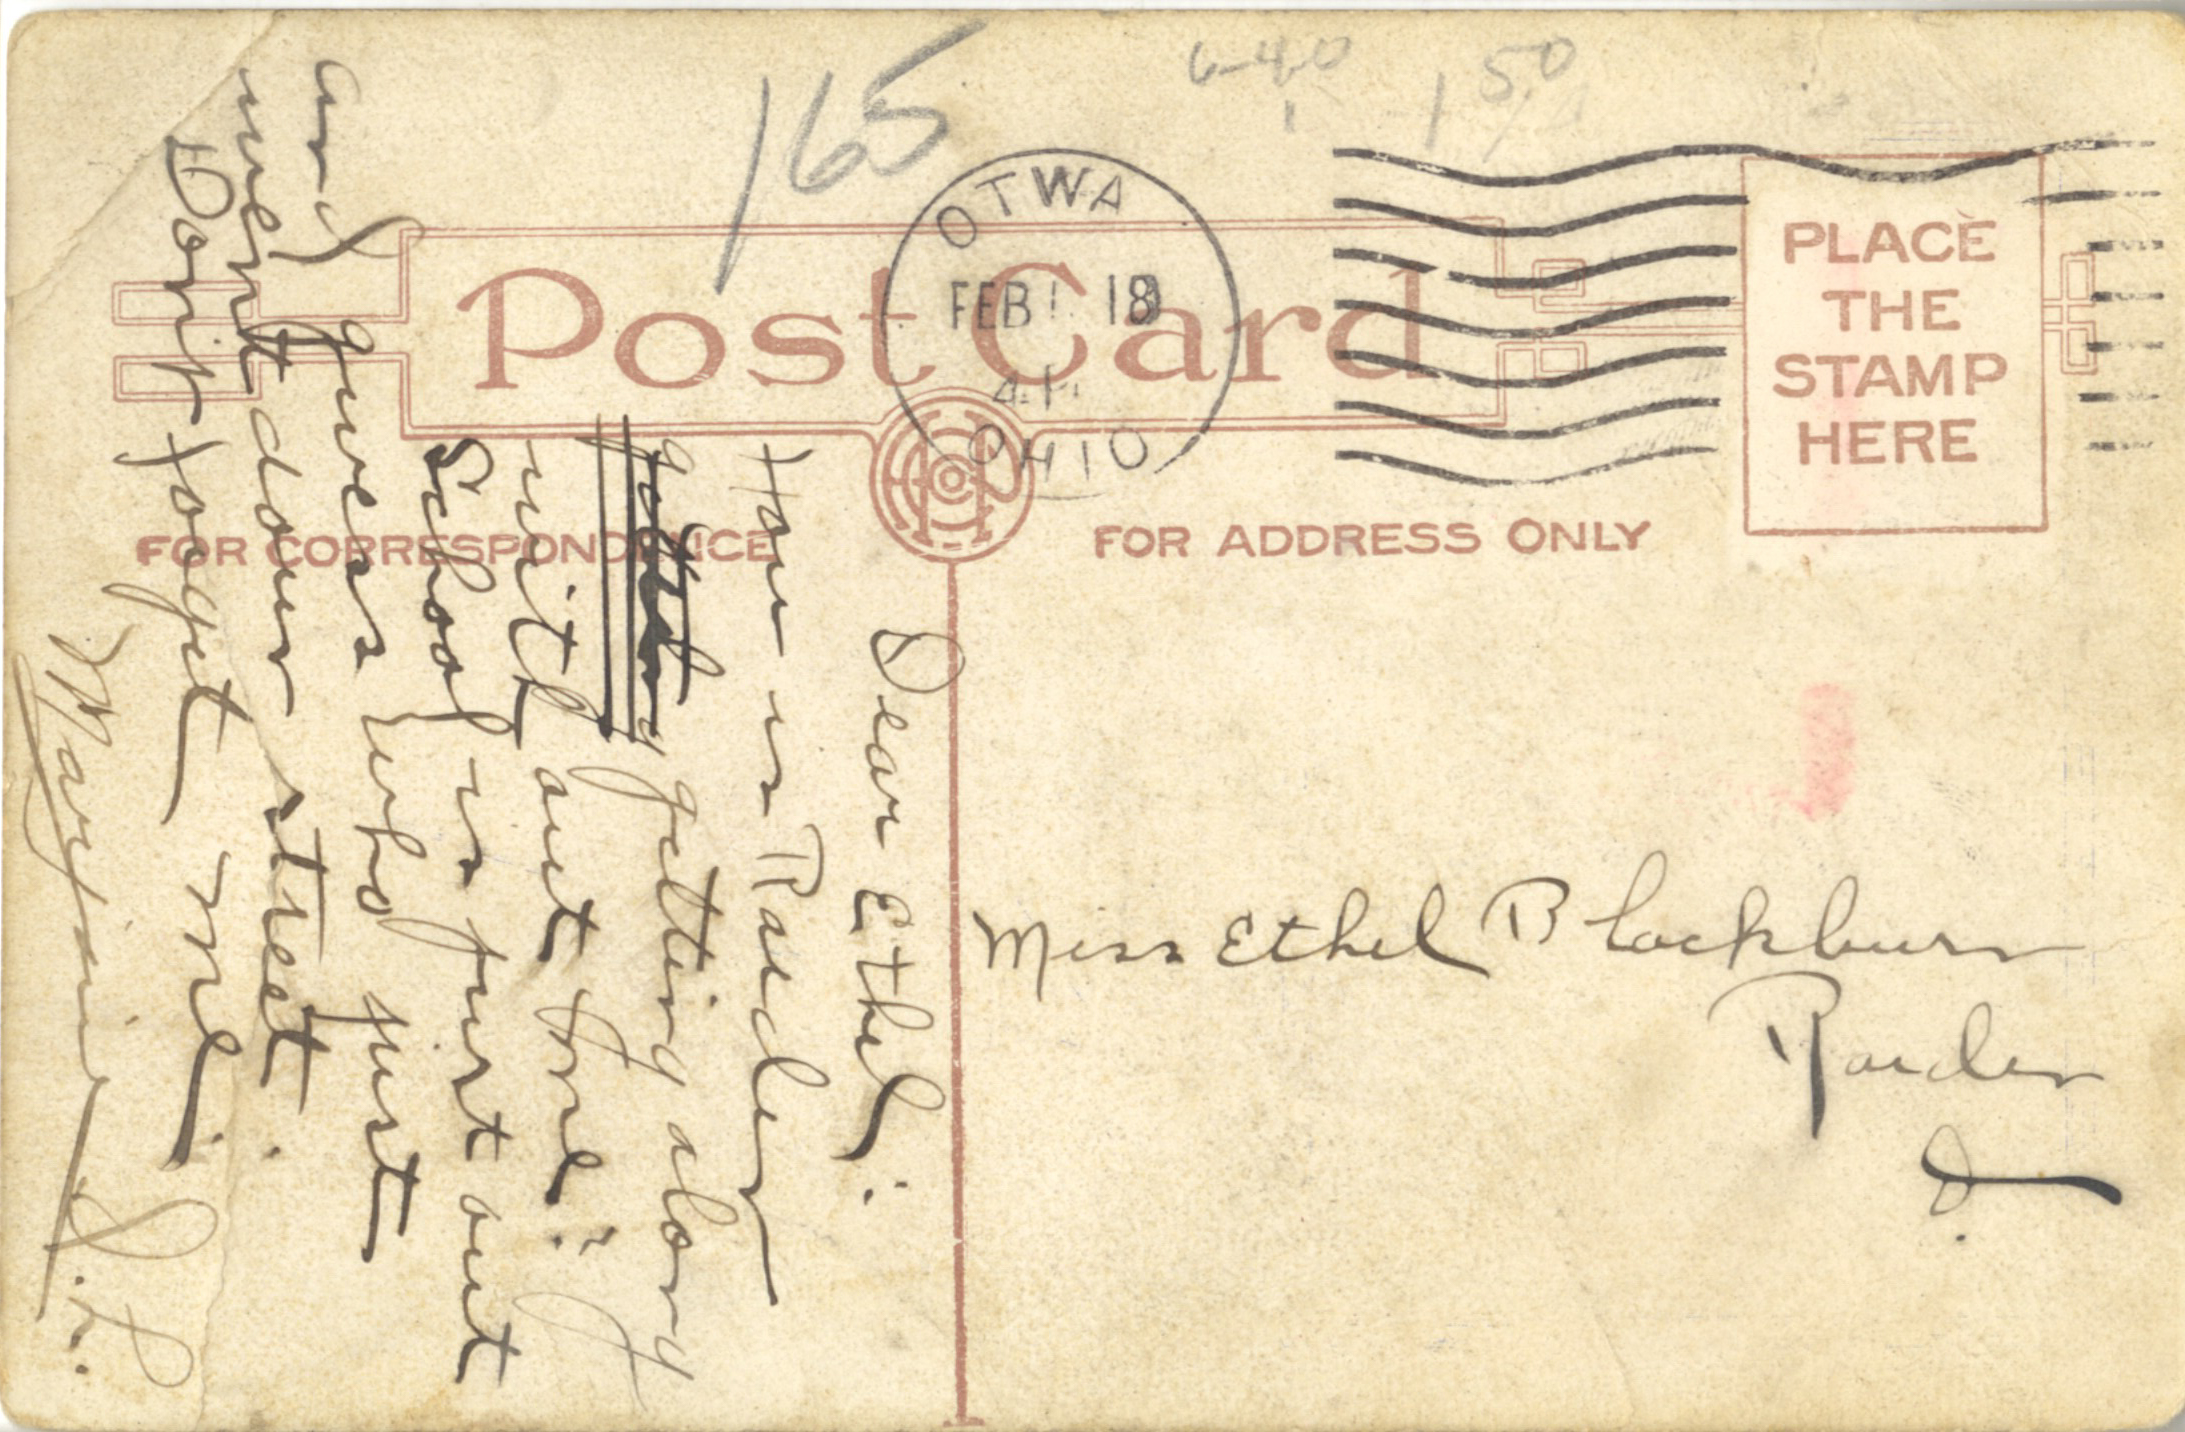 165
6-40
1 50
OTWA
FEB 1 18
4 P
OHIO
Post Card
PLACE
THE
STAMP
HERE
FOR CORRESPONDENCE
FOR ADDRESS ONLY
Dear Ethel:
How is Rarden
getting along
with out me?
School is just out
and guess who just
went down street.
Don't forget me.
Marjorie
Miss Ethel Blackburn
Rarden
O.